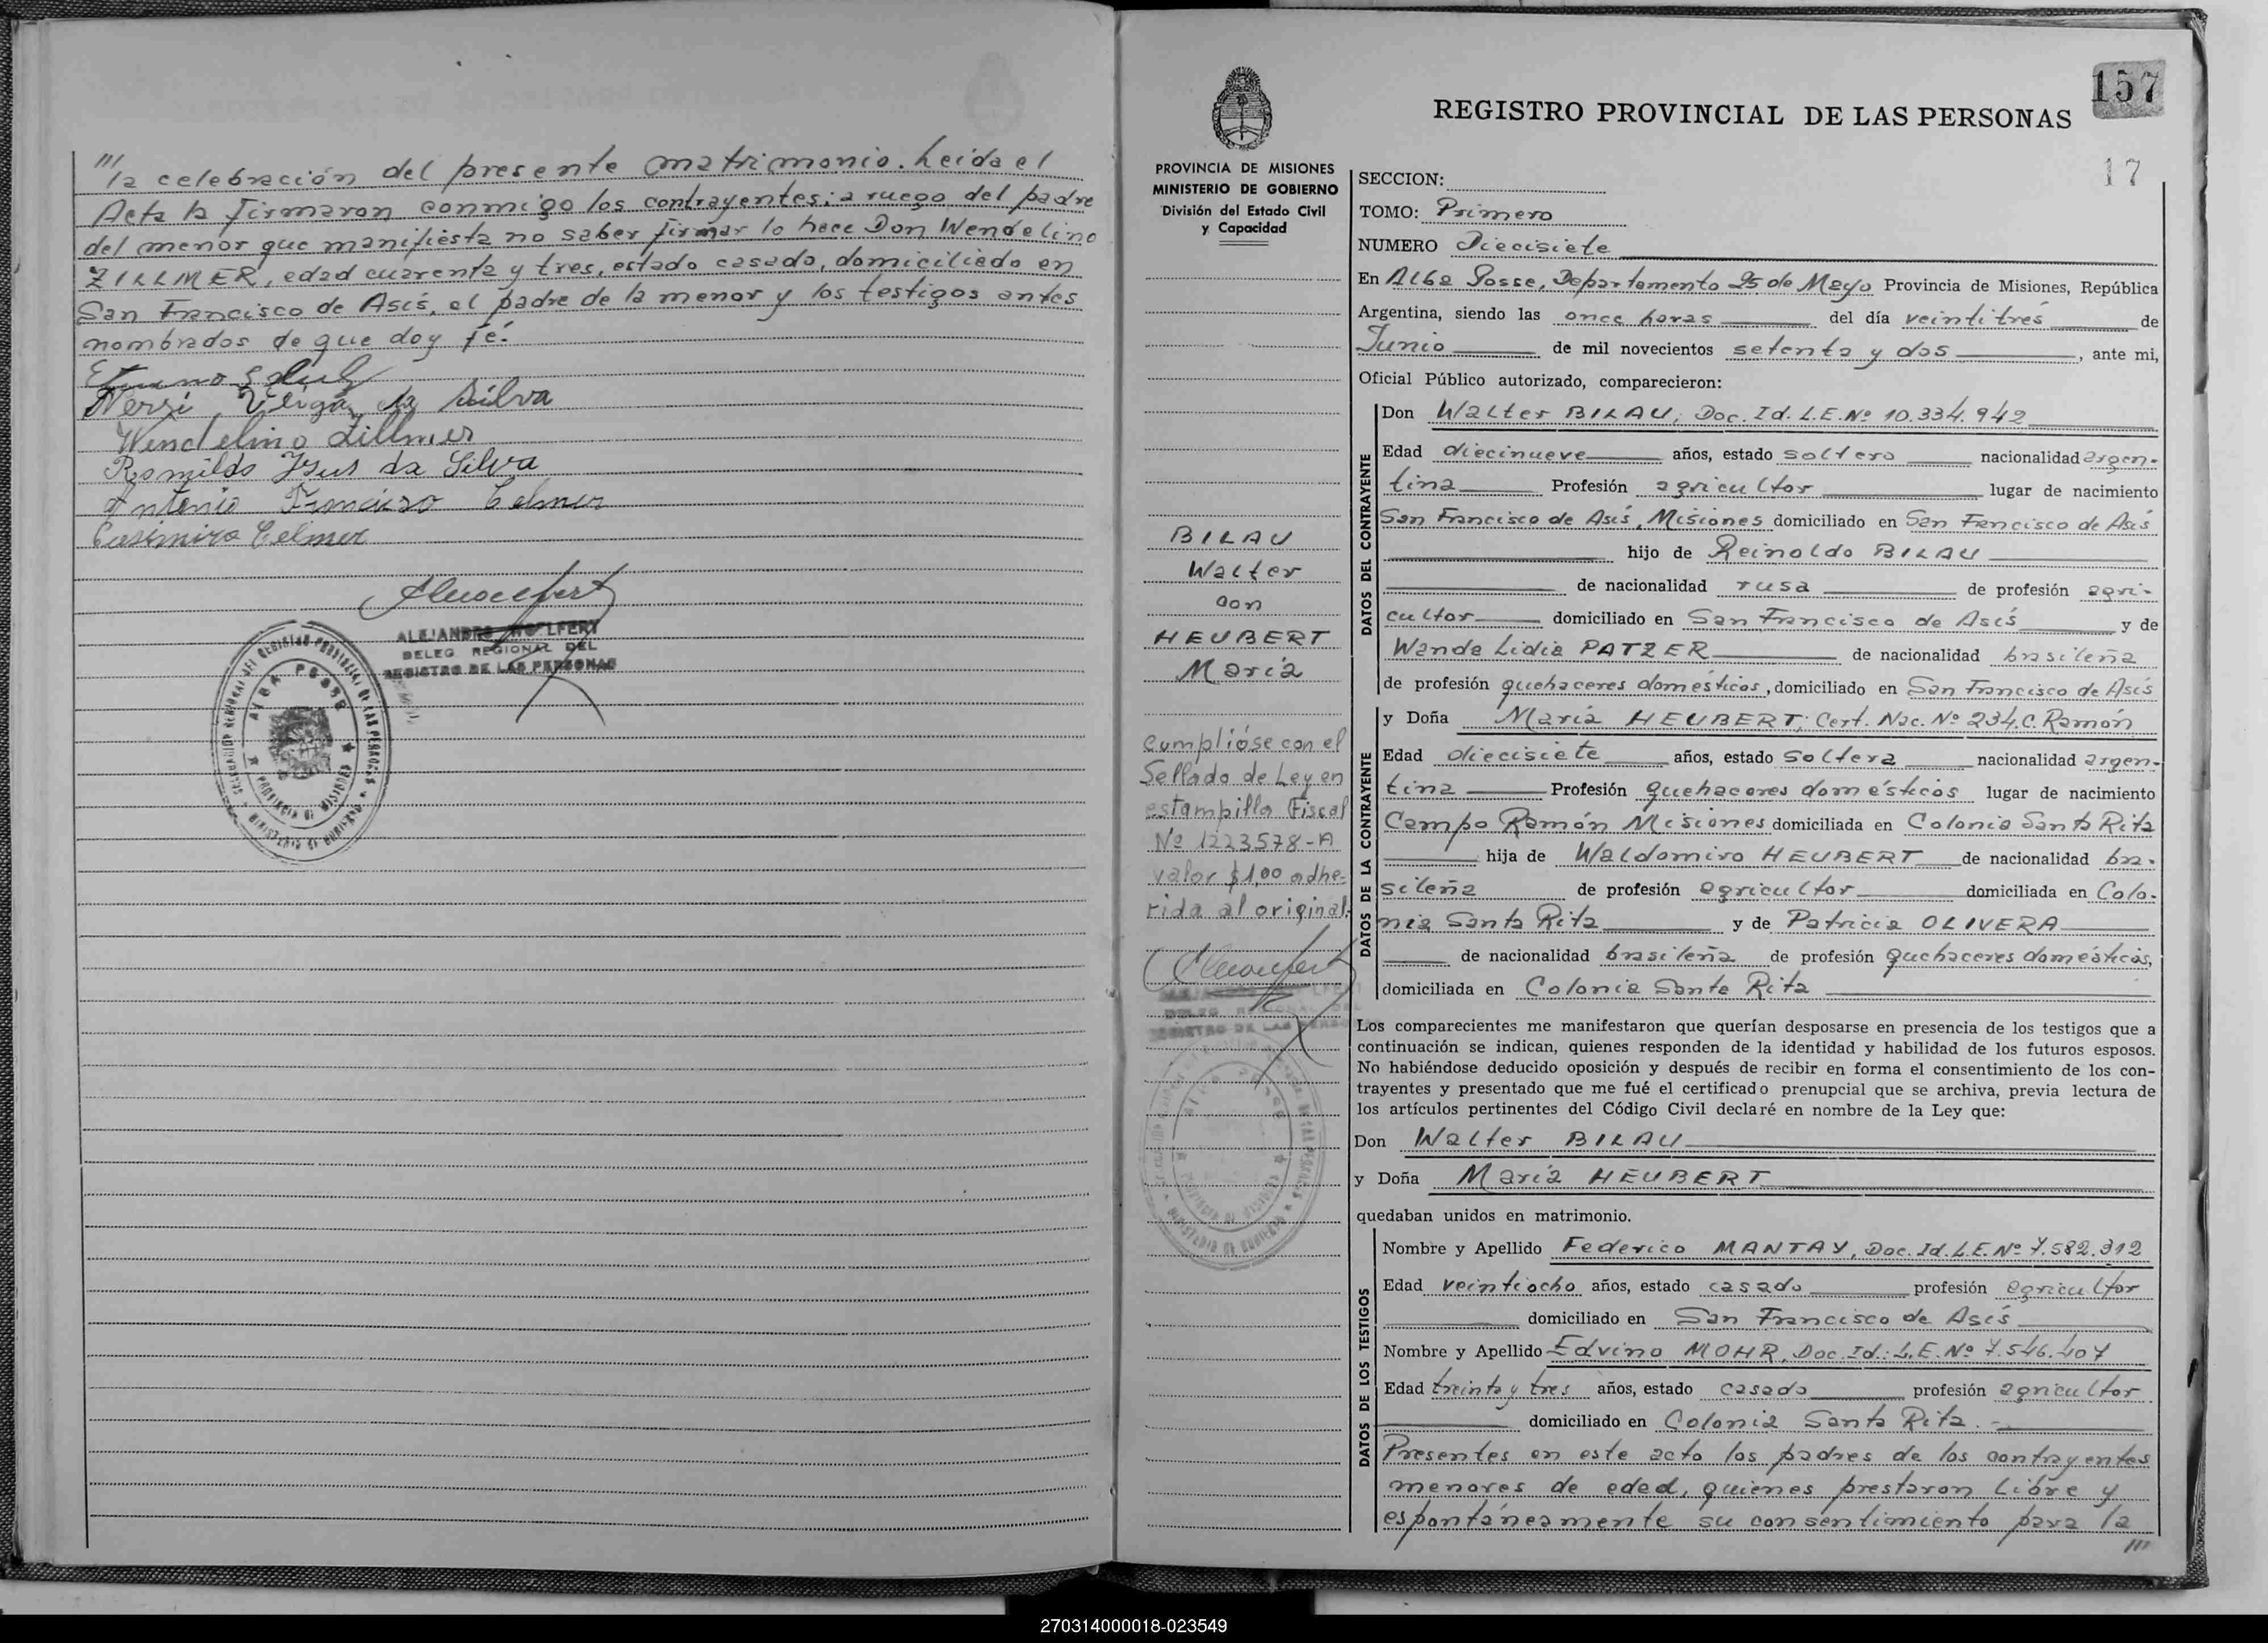 ///
la celebración del presente matrimonio. Leída el
Acta la firmaron conmigo los contrayentes; a ruego del padre
del menor que manifiesta no saber firmar lo hace Don Wendelino
ZILLMER, edad cuarenta y tres, estado casado, domiciliado en
San Francisco de Asís, el padre de la menor y los testigos antes
nombrados de que doy fé.
Nersi Veiga da Silva
Wendelino Zillmer
Romildo Jsus da Silva
Antonio Francisco Celmer
Casimiro Celmer
ALEJANDRO WOLFERT
DELEG. REGIONAL DEL
REGISTRO DE LAS PERSONAS
ALBA POSSE
PROVINCIA DE MISIONES
157
REGISTRO PROVINCIAL DE LAS PERSONAS
17
PROVINCIA DE MISIONES
MINISTERIO DE GOBIERNO
División del Estado Civil
y Capacidad
BILAU
Walter
con
HEUBERT
María
Cumplióse con el
Sellado de Ley en
estampilla Fiscal
Nº 1223578-A
valor $1,00 adhe-
rida al original.
SECCION:
TOMO: Primero
NUMERO Diecisiete
En Alba Posse, Departamento 25 de Mayo Provincia de Misiones, República
Argentina, siendo las once horas del día veintitrés de
Junio de mil novecientos setenta y dos, ante mi,
Oficial Público autorizado, comparecieron:
DATOS DEL CONTRAYENTE
Don Walter BILAU; Doc. Id. L.E. Nº 10.334.942
Edad diecinueve años, estado soltero nacionalidad argen-
tina Profesión agricultor lugar de nacimiento
San Francisco de Asís, Misiones domiciliado en San Francisco de Asís
hijo de Reinoldo BILAU
de nacionalidad rusa de profesión agri-
cultor domiciliado en San Francisco de Asís y de
Wanda Lidia PATZER de nacionalidad brasileña
de profesión quehaceres domésticos, domiciliado en San Francisco de Asís
DATOS DE LA CONTRAYENTE
y Doña María HEUBERT; Cert. Nac. Nº 234, C. Ramón
Edad diecisiete años, estado soltera nacionalidad argen-
tina Profesión quehaceres domésticos lugar de nacimiento
Campo Ramón Misiones domiciliada en Colonia Santa Rita
hija de Waldomiro HEUBERT de nacionalidad bra-
sileña de profesión agricultor domiciliada en Colo-
nia Santa Rita y de Patricia OLIVERA
de nacionalidad brasileña de profesión quehaceres domésticos,
domiciliada en Colonia Santa Rita
Los comparecientes me manifestaron que querían desposarse en presencia de los testigos que a
continuación se indican, quienes responden de la identidad y habilidad de los futuros esposos.
No habiéndose deducido oposición y después de recibir en forma el consentimiento de los con-
trayentes y presentado que me fué el certificado prenupcial que se archiva, previa lectura de
los artículos pertinentes del Código Civil declaré en nombre de la Ley que:
Don Walter BILAU
y Doña María HEUBERT
quedaban unidos en matrimonio.
DATOS DE LOS TESTIGOS
Nombre y Apellido Federico MANTAY, Doc. Id. L.E. Nº 7.582.312
Edad veintiocho años, estado casado profesión agricultor
domiciliado en San Francisco de Asís
Nombre y Apellido Edvino MOHR, Doc. Id.: L.E. Nº 7.546.407
Edad treinta y tres años, estado casado profesión agricultor
domiciliado en Colonia Santa Rita.-
Presentes en este acto los padres de los contrayentes
menores de edad, quienes prestaron libre y
espontáneamente su consentimiento para la
///
270314000018-023549